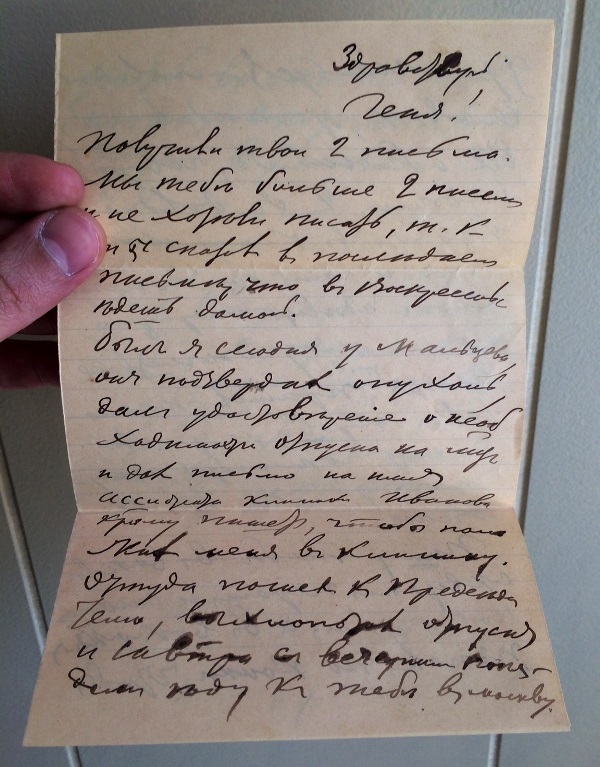 Здравствуй
Геня!
Получили твои 2 письма.
Мы тебе больше 2 писем
и не хотели писать, т. к.
ты в последнем
письме, что в воскресенье
едешь домой.
был я сегодня у Мальцева,
он подтвердил опухоль
дал удостоверение о необ
ходимости отпуска на
и дал письмо на имя
ассистента клиники Иванова
пишет, чтобы поло
жил меня в клинику.
Оттуда пошел к Председа
телю, выхлопотал отпуск
и завтра с вечерним поез-
дом еду к тебе в Москву.